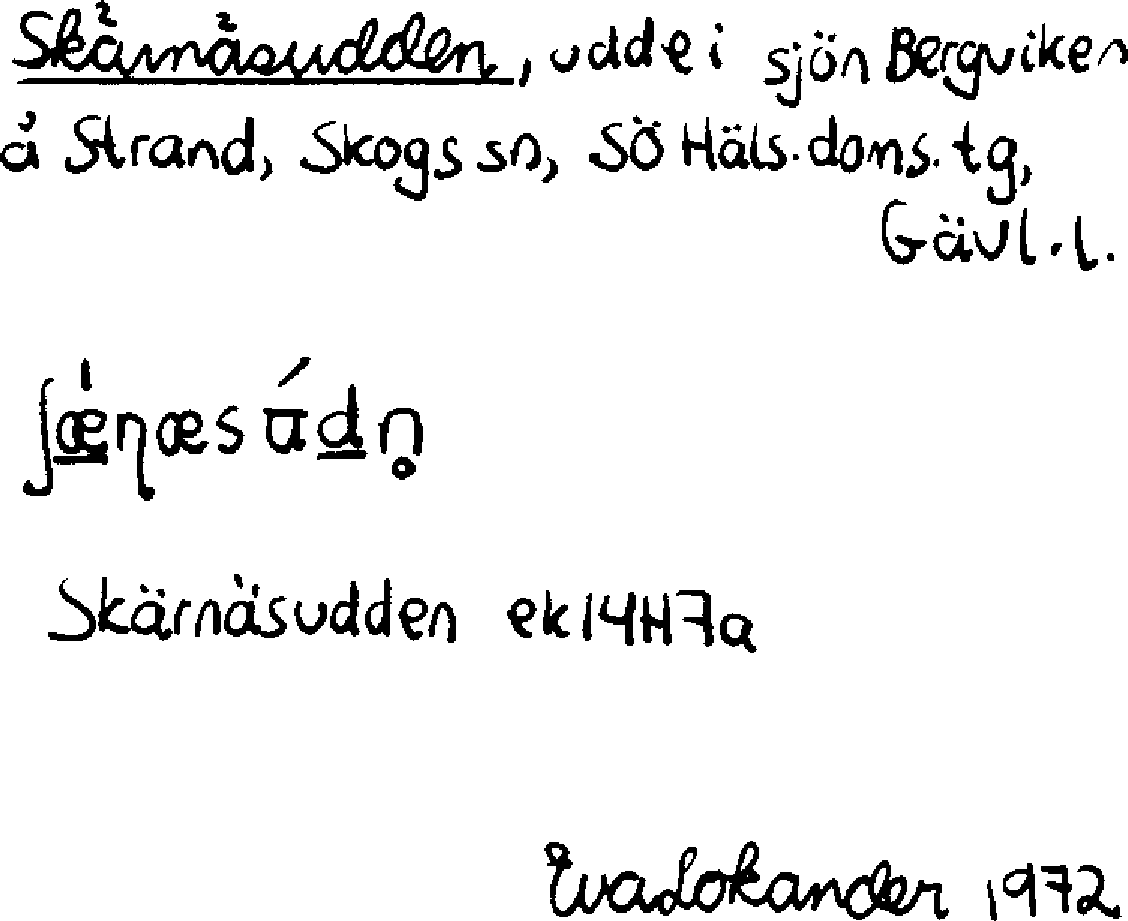 Skärnäsudden, udde i sjön Bergviken
å Strand, Skogs sn, SÖ Häls. doms. tg,
Gävl. l.
ʃǽ̲ɳæs ū́d̲n̥
Skärnäsudden ek 14H7a
Eva Lokander 1972